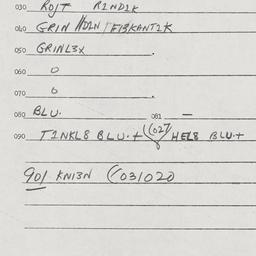 030 ROJT RIND2K
040 GRIN HDLN FEIBKANT2K
050 GRINL3X
060 0
070 0
080 BLU. 081 —
090 TINKL8 BLU.+ (027) HEL8 BLU.+
901 KNI3N (031020